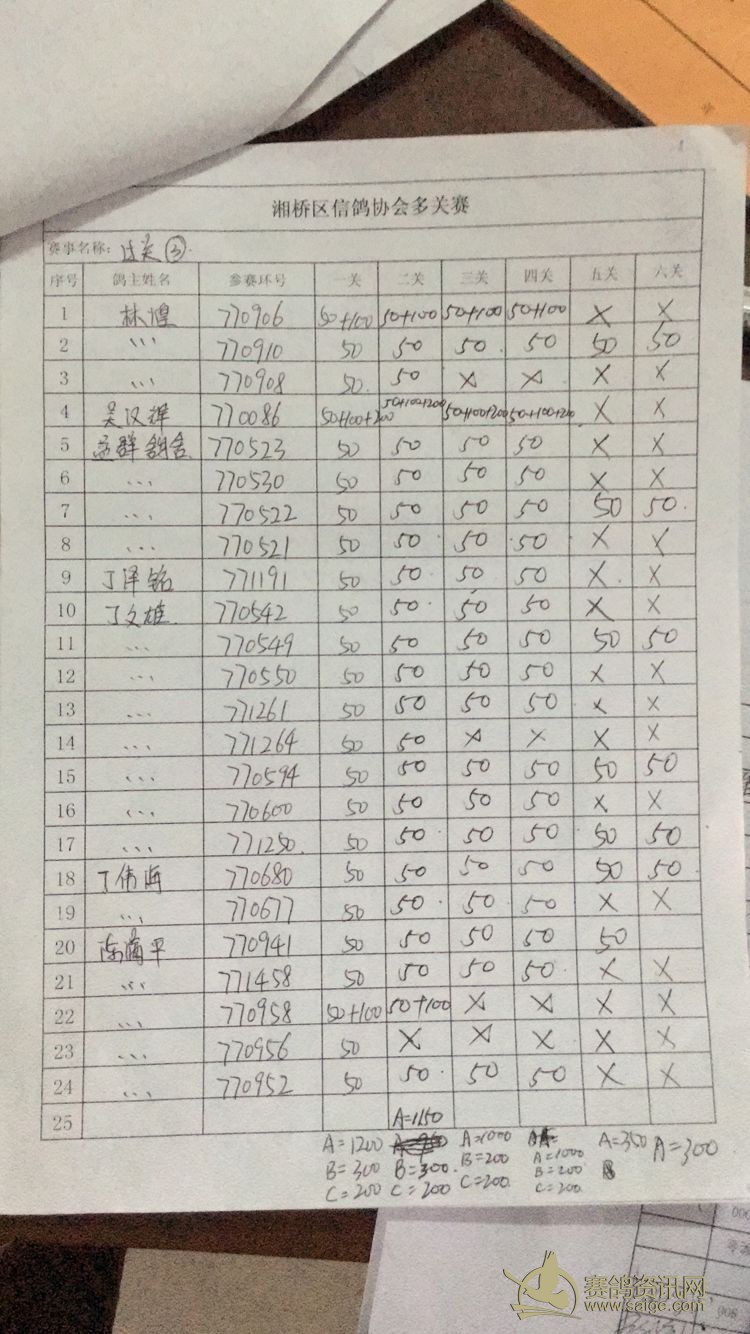 湘桥区信鸽协会多关赛
赛事名称: 过关③
序号 鸽主姓名 参赛环号 一关 二关 三关 四关 五关 六关
1 林惶 770906 50+100 50+100 50+100 50+100 X X
2 、、、 770910 50 50 50 50 50 50
3 、、、 770908 50 50 X X X X
4 吴汉辉 770086 50+100+200 50+100+200 50+100+200 50+100+200 X X
5 群鸽舍 770523 50 50 50 50 X X
6 、、、 770530 50 50 50 50 X X
7 、、、 770522 50 50 50 50 50 50
8 、、、 770521 50 50 50 50 X X
9 丁泽铭 771191 50 50 50 50 X X
10 丁文雄 770542 50 50 50 50 X X
11 、、、 770549 50 50 50 50 50 50
12 、、、 770550 50 50 50 50 X X
13 、、、 771261 50 50 50 50 X X
14 、、、 771264 50 50 X X X X
15 、、、 770594 50 50 50 50 50 50
16 、、、 770600 50 50 50 50 X X
17 、、、 771250 50 50 50 50 50 50
18 丁伟海 770680 50 50 50 50 50 50
19 、、、 770677 50 50 50 50 X X
20 陈平 770941 50 50 50 50 50
21 、、、 771458 50 50 50 50 X X
22 、、、 770958 50+100 50+100 X X X X
23 、、、 770956 50 X X X X X
24 、、、 770952 50 50 50 50 X X
25 A=1150
A=1200 A=1000 A=350 A=300
B=300 B=300 B=200 A=1000
C=200 C=200 C=200 B=200
C=200
赛鸽资讯网
www.saigc.com